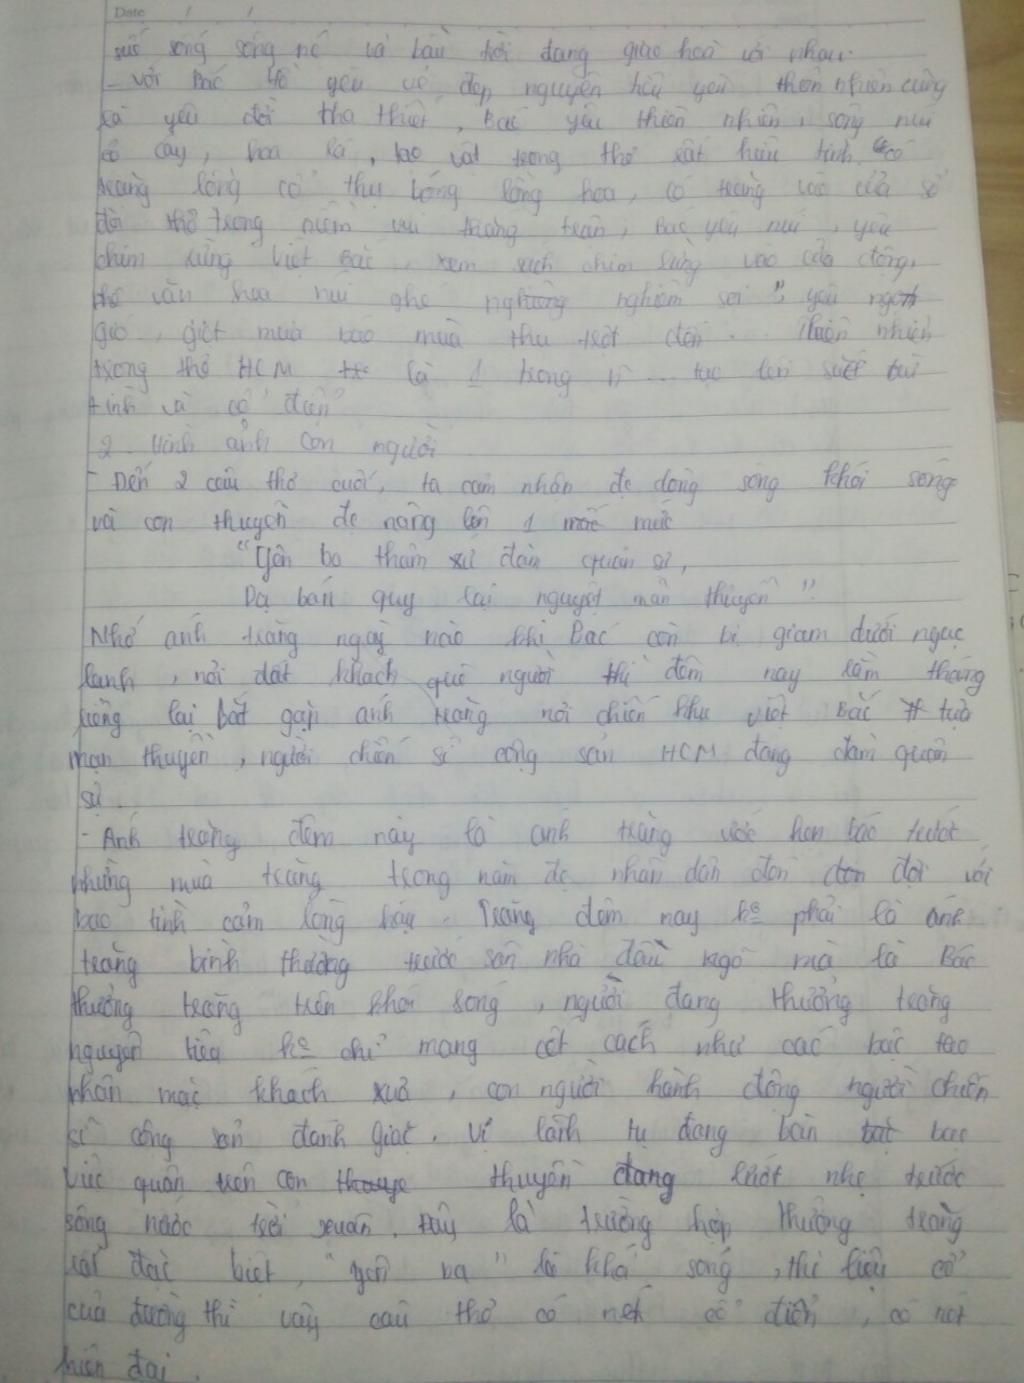 Date / /
sức sống sông nc và bầu trời đang giao hoà với nhau.
- Với Bác Hồ yêu vẻ đẹp nguyên tiêu yêu thiên nhiên cũng
là yêu đời tha thiết, Bác yêu thiên nhiên, sông núi
cỏ cây, hoa lá, tạo vật trong thơ rất hữu tình, "có
trăng lồng cổ thụ bóng lồng hoa, có trăng vào cửa sổ
đòi thơ trong niềm vui thắng trận, Bác yêu núi, yêu
chim rừng Việt Bắc, xem sách chim rừng vào cửa đậu,
phê văn hoa núi ghé nghiên soi", yêu ngọn
gió, giọt mưa báo mùa thu rét đến... Thiên nhiên
trong thơ HCM là 1 trong ... tạo lên sắc
tình và cổ điển
2. Hình ảnh con người
- Đến 2 câu thơ cuối, ta cảm nhận đc dòng sông khói sóng
và con thuyền đc nâng lên 1 mức
"Yên ba thâm xứ đàm quân sự,
Dạ bán quy lai nguyệt mãn thuyền".
Nhớ ánh trăng ngày nào khi Bác còn bị giam dưới ngục
lạnh, nơi đất khách quê người thì đêm nay rằm tháng
riêng lại bắt gặp ánh trăng nơi chiến khu Việt Bắc tựa
mạn thuyền, người chiến sĩ cộng sản HCM đang đàm quân
sự.
- Ánh trăng đêm này là ánh trăng ước hẹn báo trước
những mùa trăng trong năm đc nhân dân đón đợi với
bao tình cảm lòng hậu. Trăng đêm nay ko phải là ánh
trăng bình thường trước sân nhà đầu ngõ mà là Bác
thưởng trăng trên khói sóng, người đang thưởng trăng
nguyên tiêu ko chỉ mang cốt cách như các bậc tao
nhân mặc khách xưa, con người hành động người chiến
sĩ cộng sản đánh giặc. Vị lãnh tụ đang bàn bạc
việc quân trên con thuyền đang lướt nhẹ trước
sông nước trời xuân. Đây là trường hợp thưởng trăng
rất đặc biệt, "yên ba" là khói sóng, thi liệu cổ
của đường thi vậy câu thơ có nét cổ điển, có nét
hiện đại.